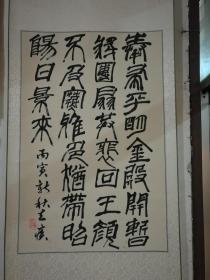 奉帚平明金殿開暫
將團扇共裴回玉顏
不及寒雅色猶帶昭
陽日景來 丙寅新秋